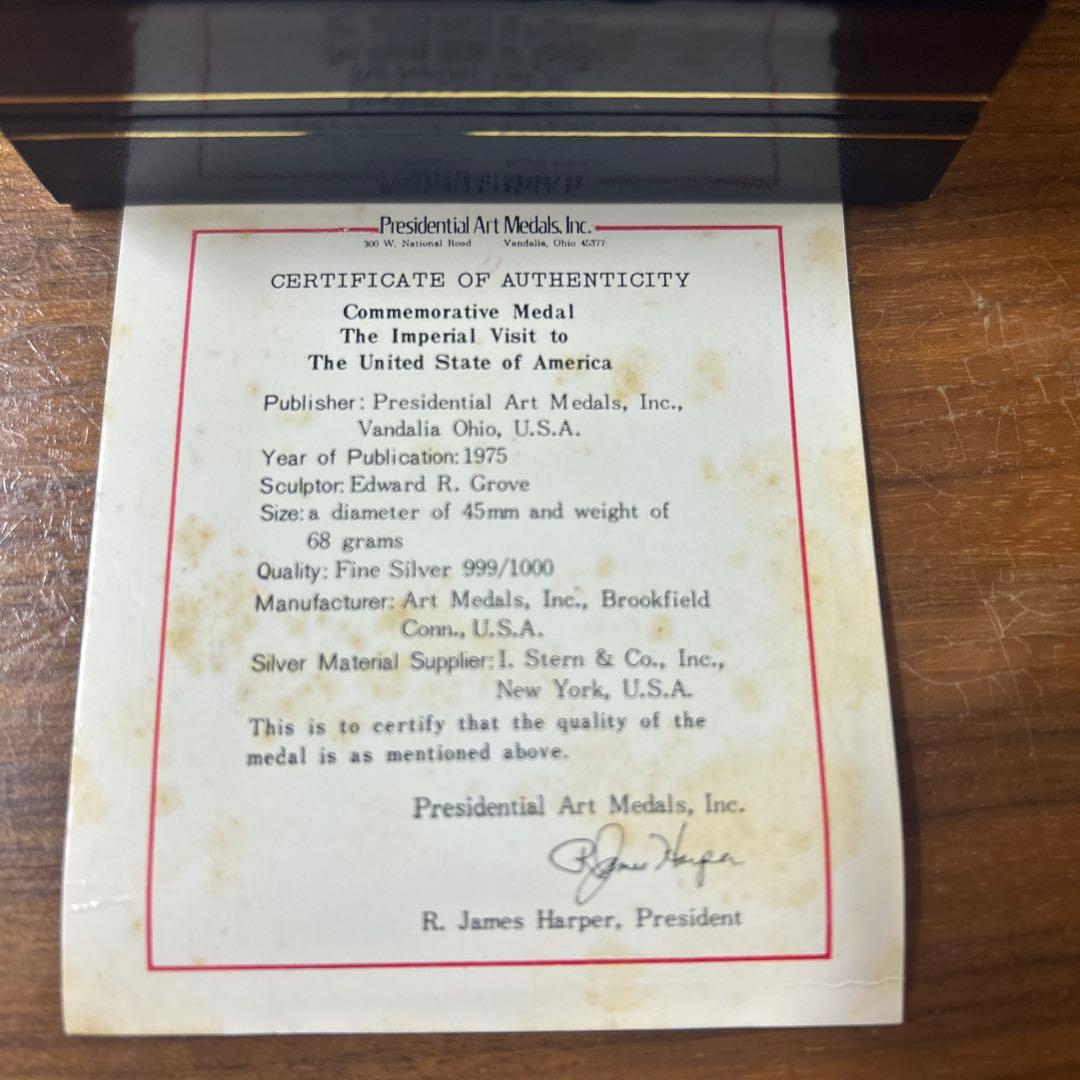 Presidential Art Medals, Inc.
300 W. National Road Vandalia, Ohio 45377
CERTIFICATE OF AUTHENTICITY
Commemorative Medal
The Imperial Visit to
The United State of America
Publisher: Presidential Art Medals, Inc.,
Vandalia Ohio, U.S.A.
Year of Publication: 1975
Sculptor: Edward R. Grove
Size: a diameter of 45mm and weight of
68 grams
Quality: Fine Silver 999/1000
Manufacturer: Art Medals, Inc., Brookfield
Conn., U.S.A.
Silver Material Supplier: I. Stern & Co., Inc.,
New York, U.S.A.
This is to certify that the quality of the
medal is as mentioned above.
Presidential Art Medals, Inc.
R James Harper
R. James Harper, President